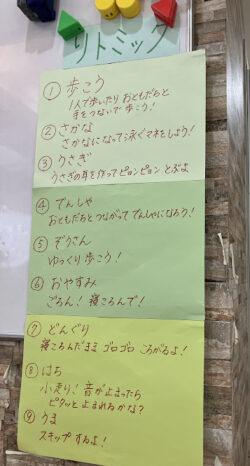 リトミック
① 歩こう
1人で歩いたり おともだちと
手をつないで 歩こう!
② さかな
さかなになって 泳ぐマネをしよう!
③ うさぎ
うさぎの耳を作って ピョンピョン とぶよ
④ でんしゃ
おともだちとつながって でんしゃになろう!
⑤ ぞうさん
ゆっくり 歩こう!
⑥ おやすみ
ごろん! 寝ころんで!
⑦ どんぐり
寝ころんだまま ゴロゴロ ころがるよ!
⑧ はち
小走り! 音が止まったら
ピタッと 止まれるかな?
⑨ うま
スキップするよ!